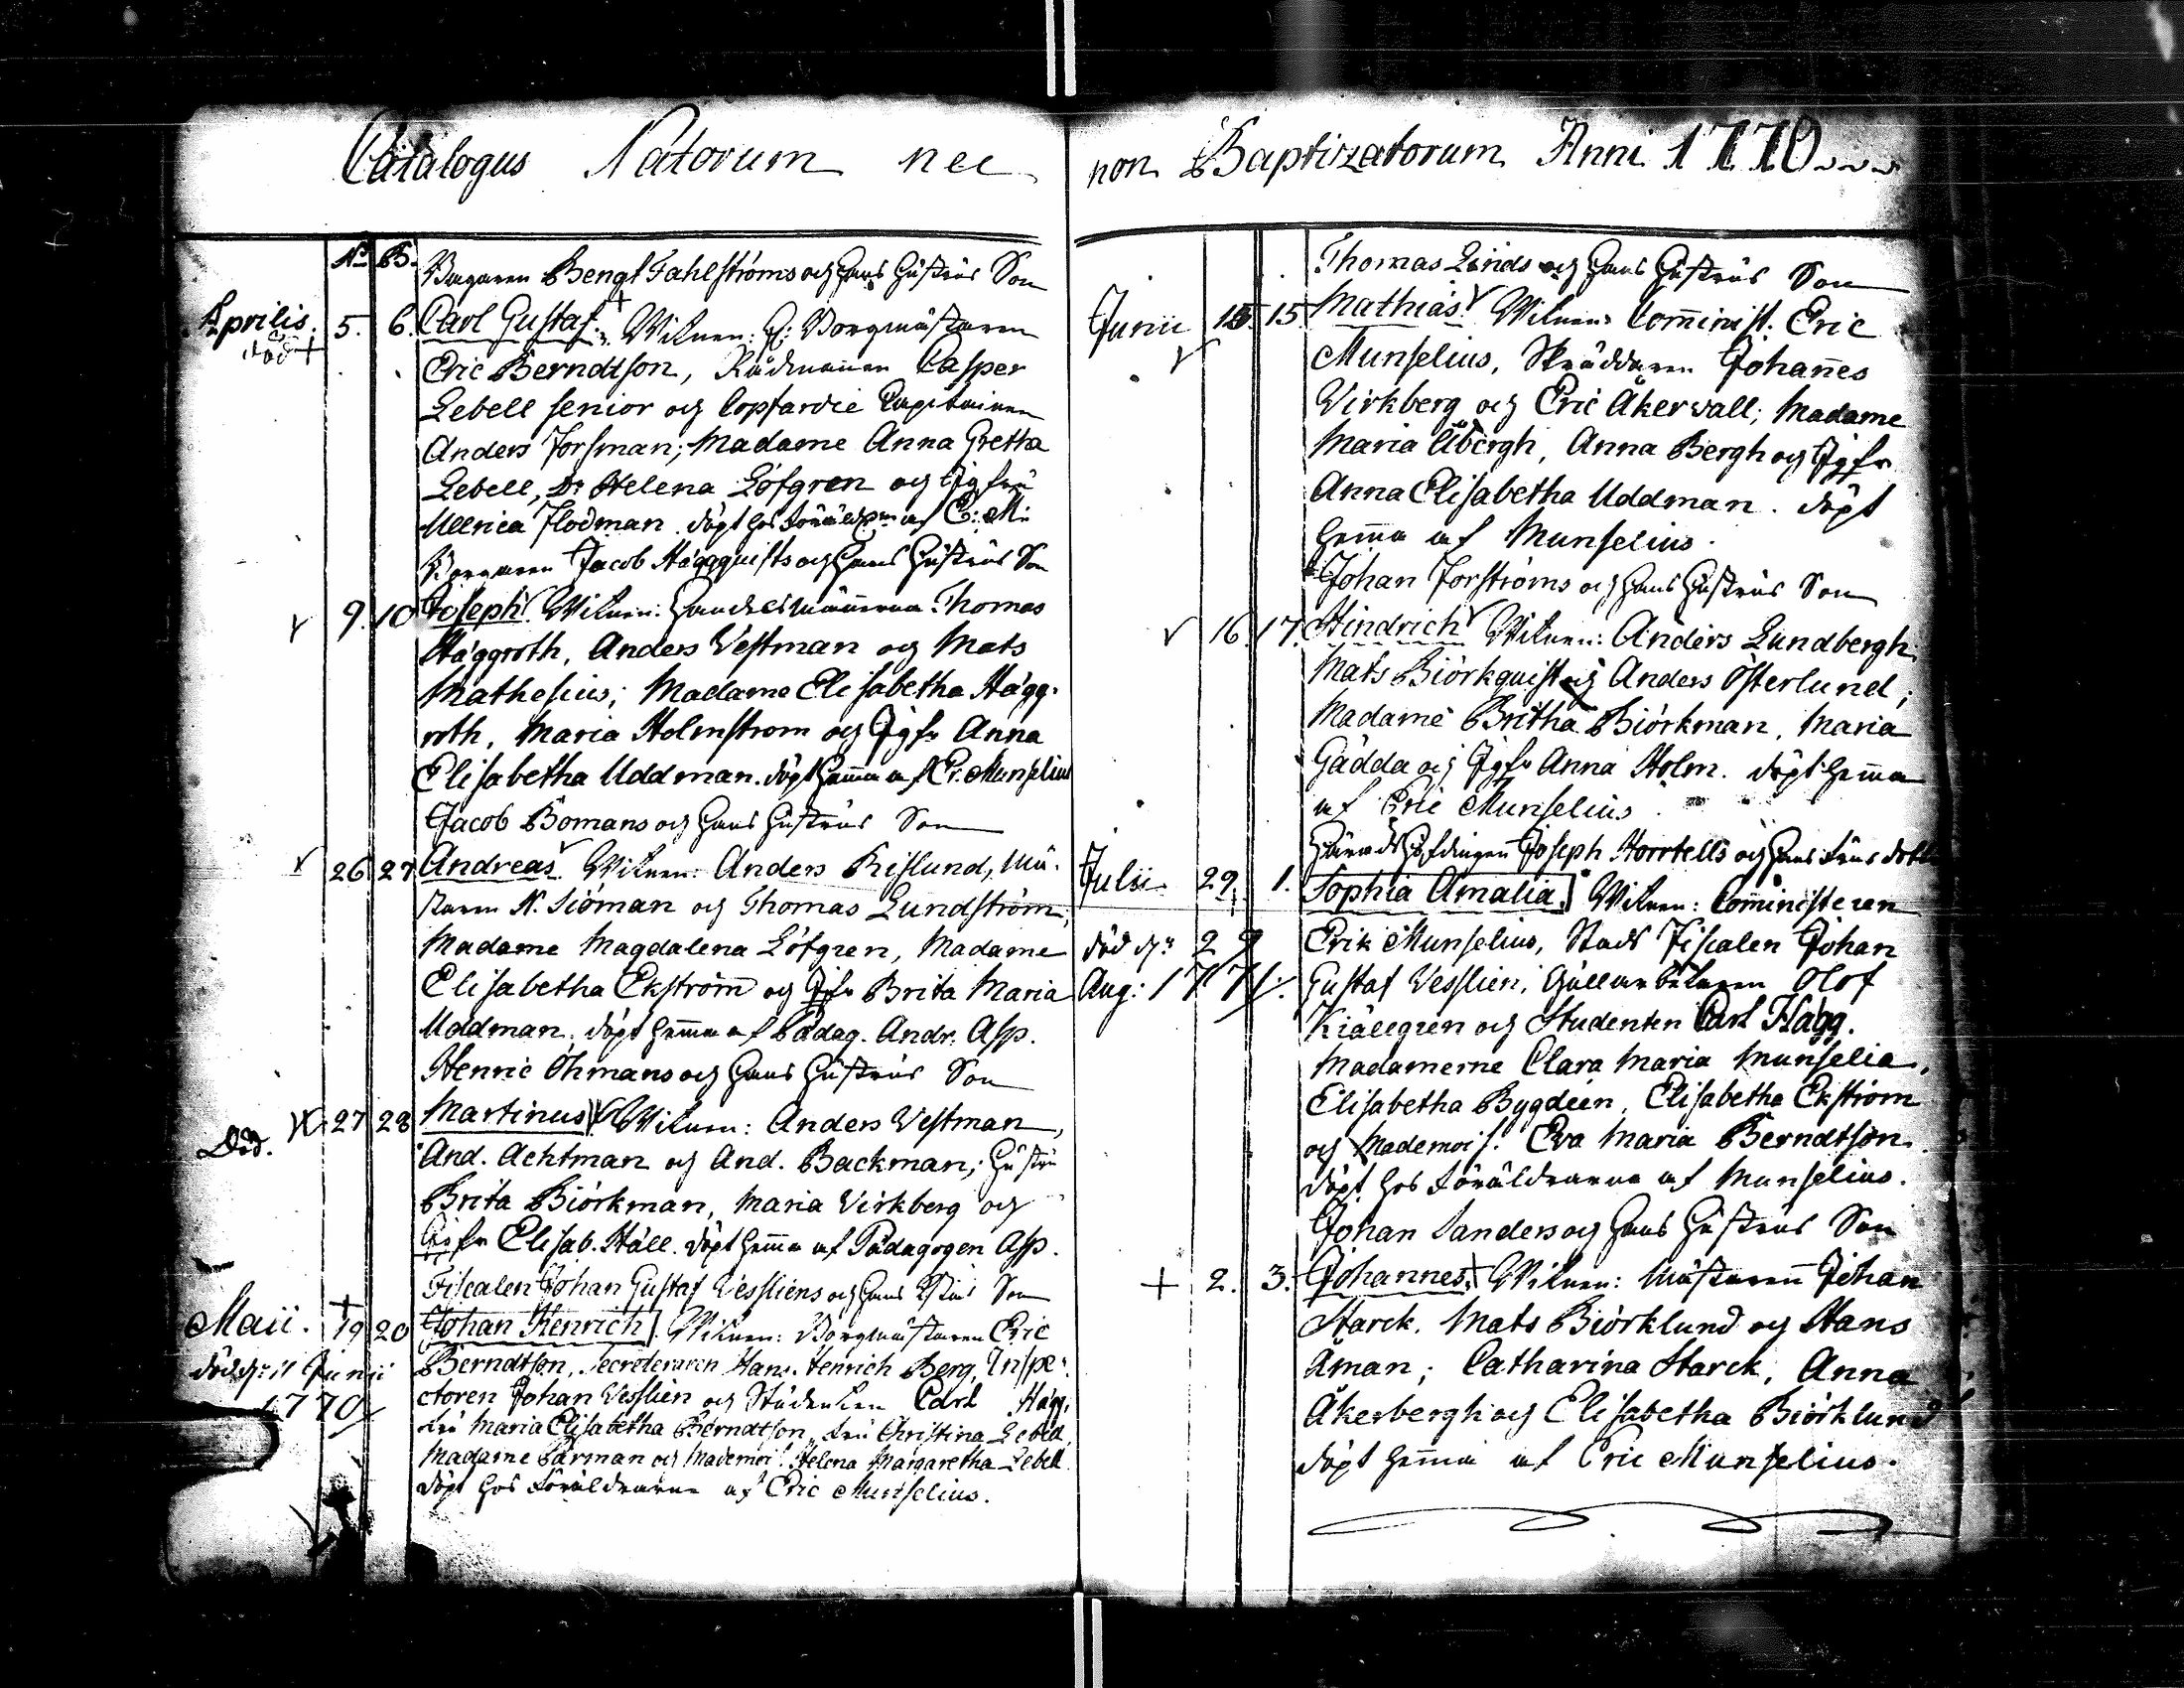 Catalogus Natorum nec
N. B.
Bagaren Bengt Fahlströms och hans hustrus Son
Aprilis. död + 5. 6. Carl Gustaf. Witnen: H: Borgmästaren
Eric Berndtson, Rådmannen Casper
Lebell senior och Copfardie Capitainen
Anders Forsman; Madame Anna Gretha
Lebell, Dr Helena Löfgren och Jgfru
Ullrica Flodman. döpt hos föräldrarna af E: M:
Borgaren Jacob Häggquists och hans hustrus Son
9. 10 Joseph. Witnen: Handelsmännerna Thomas
Häggroth, Anders Vestman och Mats
Mathesius; Madame Elisabetha Hägg-
roth, Maria Holmstrom och Jgfr Anna
Elisabetha Uddman. döpt hemma af Er. Munselius
Jacob Bomans och hans hustrus Son
26 27 Andreas. Witnen: Anders Rislund, Mä-
staren N. Siöman och Thomas Lundström;
Madame Magdalena Löfgren, Madame
Elisabetha Ekström och Jgfr Brita Maria
Uddman. döpt hemma af Pädag. Andr. Asp.
Henric Öhmans och hans hustrus Son
Död. 27 28 Martinus. Witnen: Anders Vestman,
And. Achtman och And. Backman; hustru
Brita Biörkman, Maria Virkberg och
Jgfr Elisab. Häll. döpt hemma af Pädagogen Asp.
Fiscalen Johan Gustaf Vessliens och hans Son
Maii. + 19 20 Johan Henrich. Witnen: Borgmästaren Eric
död d: 11 Junii Berndtson, Secreteraren Hans Henrich Berg, Inspe-
1770 ctoren Johan Vesslien och Studenten Carl Hägg,
fru Maria Elisabetha Berndtson, fru Christina Lebell,
Madame Barman och Mademois. Helena Margaretha Lebell
döpt hos föräldrarna af Eric Munselius.
non Baptizatorum Anni 1770
Thomas Linds och hans hustrus Son
Junii 15. Mathias. Witnen: Comminist. Eric
Munselius, Skräddaren Johannes
Virkberg och Eric Åkervall; Madame
Maria Åbergh, Anna Bergh och Jgfr
Anna Elisabetha Uddman. döpt
hemma af Munselius.
Johan Forströms och hans hustrus Son
16. 17. Hindrich. Witnen: Anders Lundbergh,
Mats Biörkquist och Anders Österlund;
Madame Britha Biörkman, Maria
Gädda och Jgfr Anna Holm. döpt hemma
af Eric Munselius
Häradshöfdingen Joseph Horrtells och hans frus dott
Julii 29. 1. Sophia Amalia. Witnen: Comministeren
död d: 29 Erik Munselius, Stads Fiscalen Johan
Aug: 1771. Gustaf Vesslien, Gullarbetaren Olof
Kiällgren och Studenten Carl Hägg.
Madamerne Clara Maria Munselia,
Elisabetha Bygdéen, Elisabetha Ekström
och Mademois. Eva Maria Berndtson.
döpt hos föräldrarna af Munselius.
Johan Sanders och hans hustrus Son
+ 2. 3. Johannes. Witnen: Mästaren Johan
Starck, Mats Biörklund och Hans
Åman; Catharina Starck, Anna
Åkerbergh och Elisabetha Biörklund
döpt hemma af Eric Munselius.